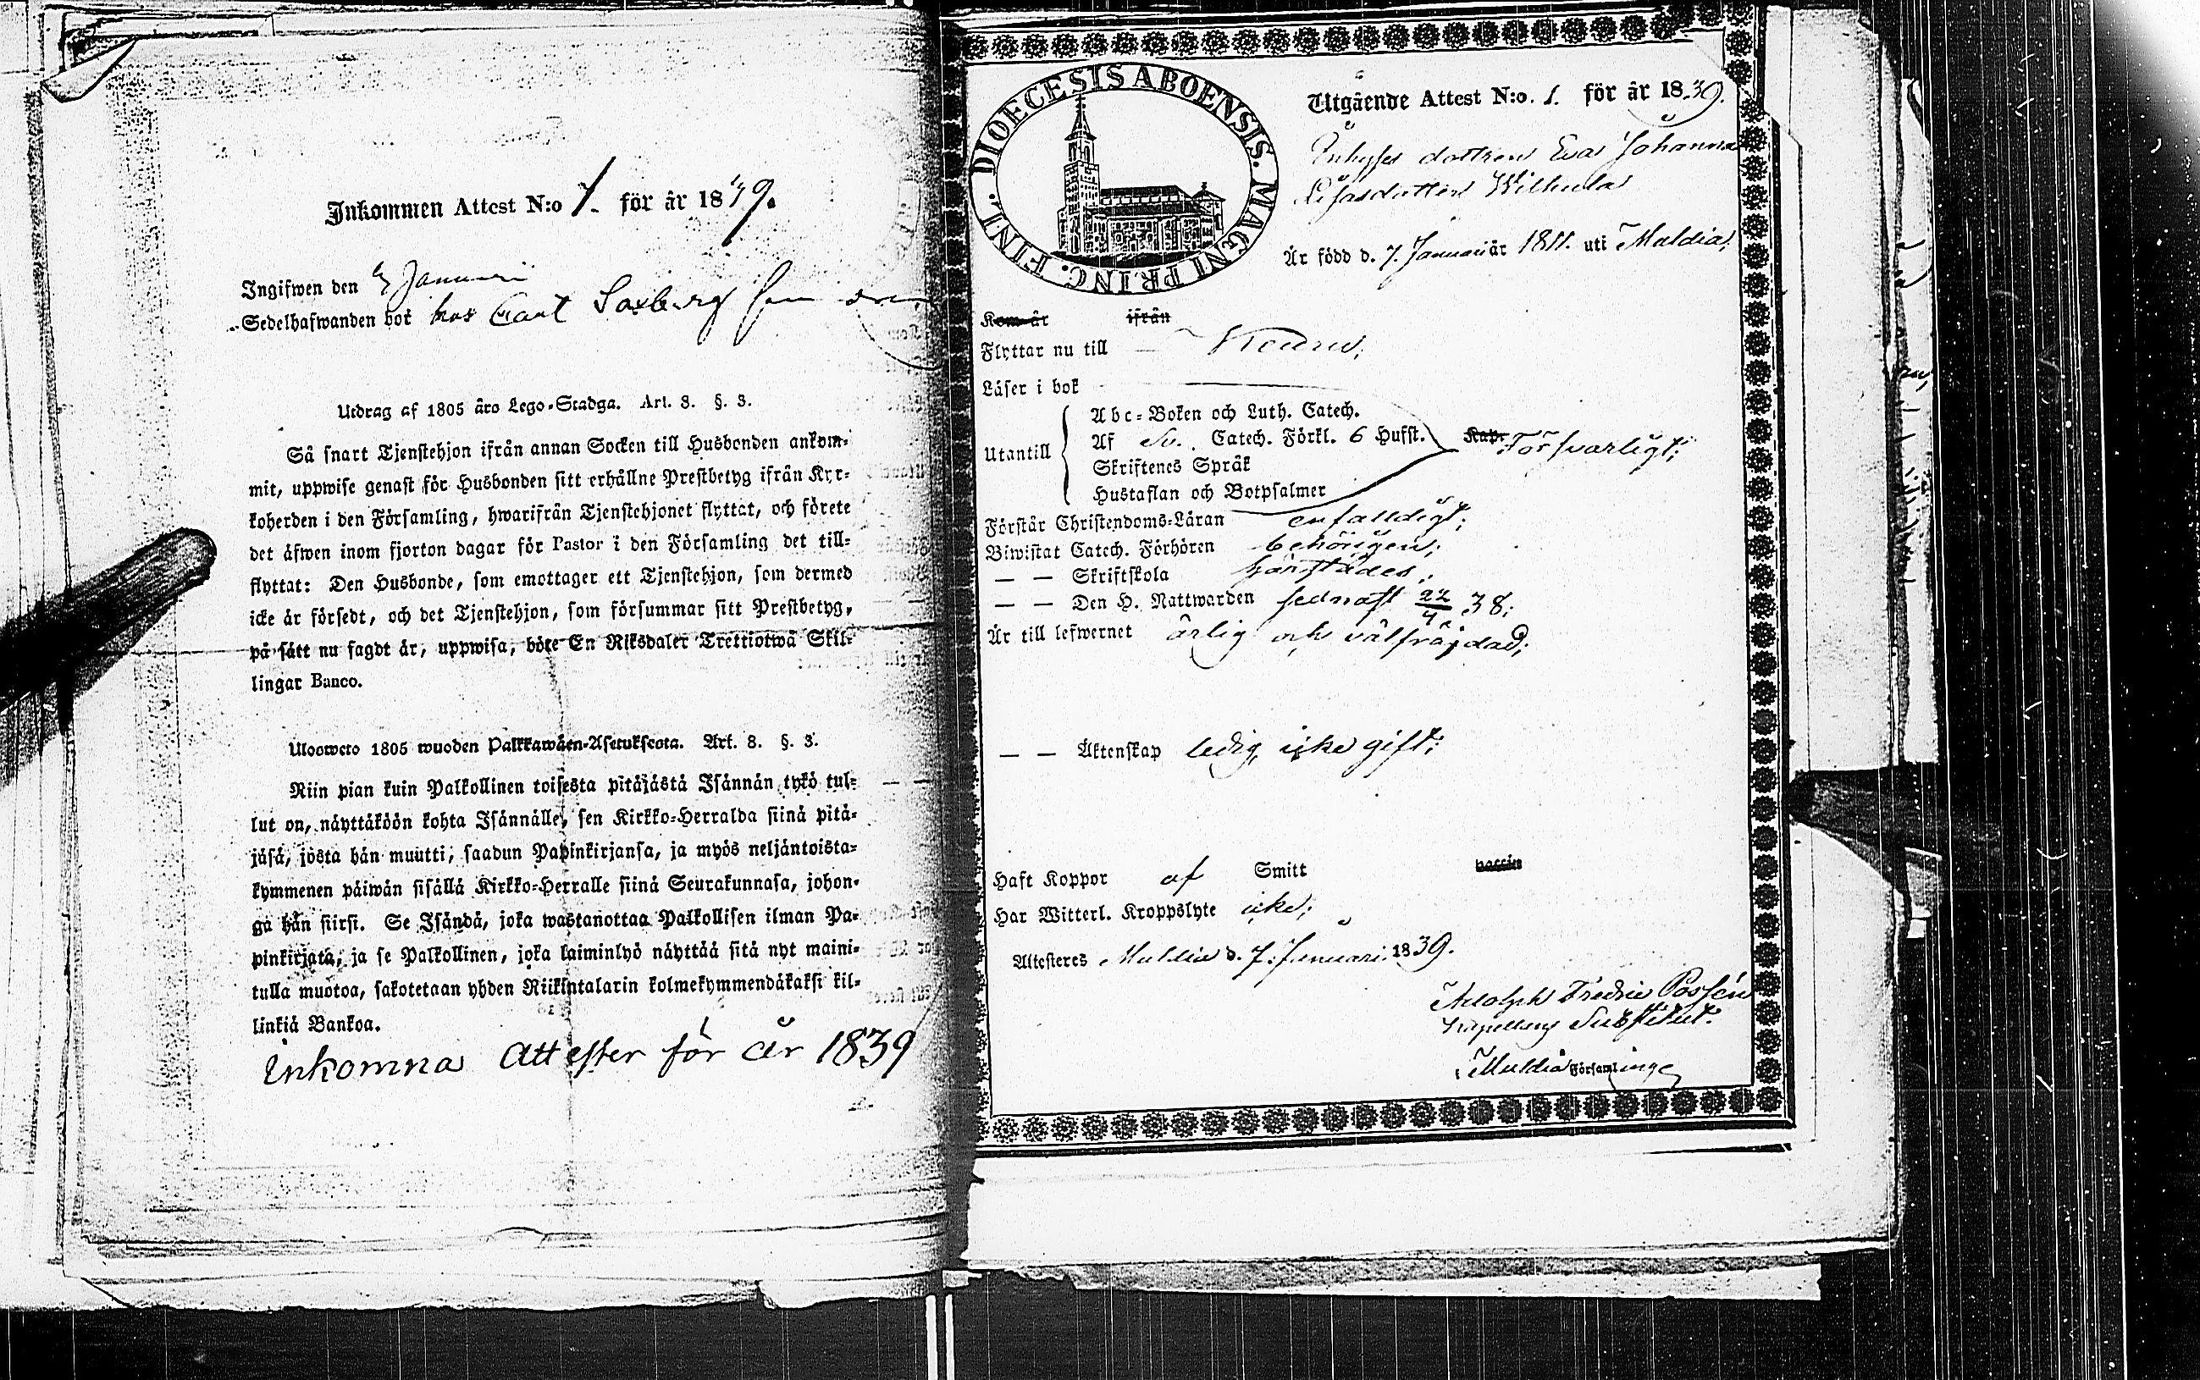 Inkommen Attest N:o 1. för år 1839.
Ingifwen den 9 Januari
Sedelhafwanden bor hos Carl Saxberg som
Utdrag af 1805 åro Lego-Stadga. Art. 8. §. 3.
Så snart Tjenstehjon ifrån annan Socken till Husbonden ankom-
mit, uppwise genast för Husbonden sitt erhållne Prestbetyg ifrån Kyr-
koherden i den Församling, hwarifrån Tjenstehjonet flyttat, och förete
det äfwen inom fjorton dagar för Pastor i den Församling det till-
flyttat: Den Husbonde, som emottager ett Tjenstehjon, som dermed
icke är försedt, och det Tjenstehjon, som försummar sitt Prestbetyg,
på sätt nu sagdt är, uppwisa, böte En Riksdaler Trettiotwå Skil-
lingar Banco.
Ulosweto 1805 wuoden Palkkawäen-Asetuksesta. Art. 8. §. 3.
Niin pian kuin Palkollinen toisesta pitäjästä Isännän tykö tul-
lut on, näyttäköön kohta Isännälle, sen Kirkko-Herralda siinä pitä-
jäsä, josta hän muutti, saadun Papinkirjansa, ja myös neljäntoista-
kymmenen päiwän sisällä Kirkko-Herralle siinä Seurakunnasa, johon-
ga hän siirsi. Se Isändä, joka wastanottaa Palkollisen ilman Pa-
pinkirjata, ja se Palkollinen, joka laiminlyö näyttää sitä nyt maini-
tulla muotoa, sakotetaan yhden Riikintalarin kolmekymmendäkaksi kil-
linkiä Bankoa.
Inkomna Attester för år 1839
DIOECESIS ABOENSIS. MAGNI PRINC. FINL.
Utgående Attest N:o. 1. för år 1839.
Inhyses dottren Eva Johanna
Lisasdotter Wilhula
Är född d. 7. Januari år 1811. uti Muldia;
Kom år ifrån
Flyttar nu till — Keuru;
Läser i bok
Abc-Boken och Luth. Catech.
Utantill Af Sv. Catech. Förkl. 6 Hufst. Kap. Försvarligt;
Skriftenes Språk
Hustaflan och Botpsalmer
Förstår Christendoms-Läran enfalldigt;
Biwistat Catech. Förhören behörigen;
— — Skriftskola härstädes;
— — Den H. Nattwarden sednast 22/4 38;
Är till lefwernet ärlig och välfräjdad;
— — Äktenskap ledig, icke gift;
Haft Koppor af Smitt vaccin
Har Witterl. Kroppslyte icke;
Attesteres Muldia d. 7. Januari. 1839.
Adolph Fredric Possén
Kapellans Substitut.
Muldia Församlinge